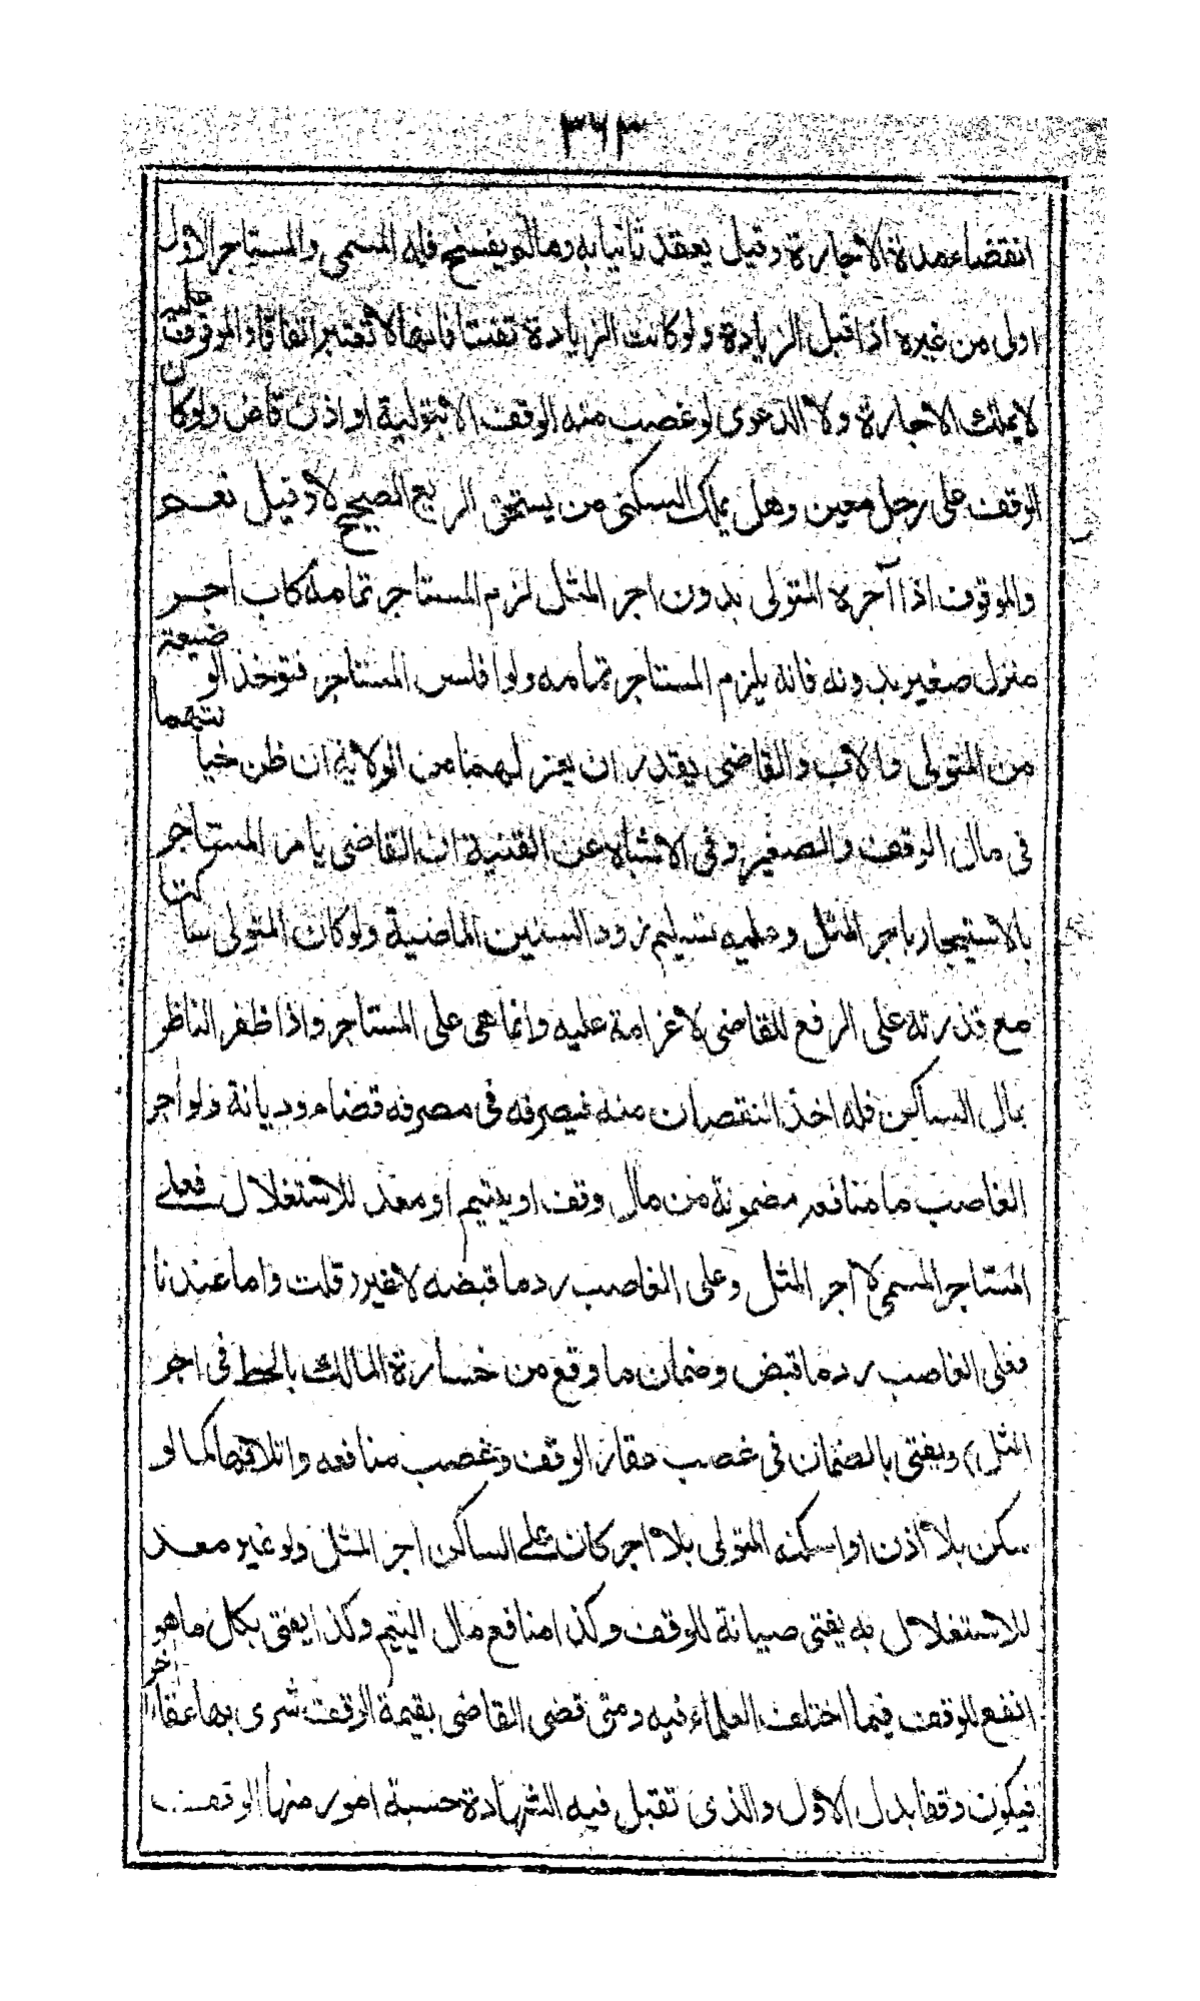 ٣٦٣
انقضاء مدة الاجارة وقيل يعقد ثانيا به وما لم يفسخ فله المسمى والمستاجر الاول
اولى من غيره اذا قبل الزيادة ولو كانت الزيادة تعنتا فانها لا تعتبر اتفاقا والموقوف عليه
لا يملك الاجارة ولا الدعوى لو غصب منه الوقف الا بتولية او اذن قاض ولو كان
الوقف على رجل معين وهل يملك السكنى من يستحق الريع الصحيح لا وقيل نعم
والموقوف اذا آجره المتولى بدون اجر المثل لزم المستاجر تمامه كاب اجر
منزل صغير بدونه فانه يلزم المستاجر تمامه ولو افلس المستاجر فتوخذ الوضيعة
من المتولى والاب والقاضى يقدر ان يعزلهما من الولاية ان ظن خيانتهما
فى مال الوقف والصغير وفى الاشباه عن القنية ان القاضى يامر المستاجر
بالاستيجار باجر المثل وعليه تسليم زود السنين الماضية ولو كان المتولى ساكتا
مع قدرته على الرفع للقاضى لا غرامة عليه وانما هى على المستاجر واذا ظفر الناظر
بمال الساكن فله اخذ النقصان منه فيصرفه فى مصرفه قضاء وديانة ولو أجر
الغاصب ما منافعه مضمونة من مال وقف او يتيم او معد للاستغلال فعلى
المستاجر المسمى لا اجر المثل وعلى الغاصب رد ما قبضه لا غير (قلت واما عندنا
فعلى الغاصب رد ما قبض وضمان ما وقع من خسارة المالك بالحط فى اجر
المثل) ويفتى بالضمان فى غصب عقار الوقف وغصب منافعه واتلافها كما لو
سكن بلا اذن او اسكنه المتولى بلا اجر كان على الساكن اجر المثل ولو غير معد
للاستغلال به يفتى صيانة للوقف وكذا منافع مال اليتيم وكذا يفتى بكل ما هو
انفع للوقف فيما اختلف العلماء فيه ومتى قضى القاضى بقيمة الوقف شرى بها عقارا آخر
فيكون وقفا بدل الاول والذى تقبل فيه الشهادة حسبة امور منها الوقف